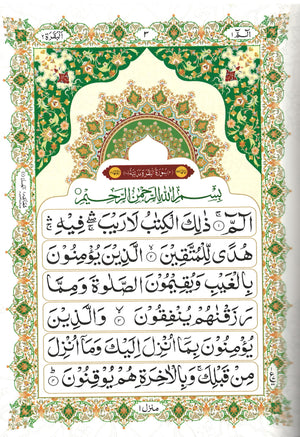 البقرة ٢
٣
الٓمّٓ ١
سُوْرَةُ الْبَقَرَةِ مَدَنِيَّةٌ
بِسْمِ اللّٰهِ الرَّحْمٰنِ الرَّحِيْمِ
الٓمّٓ ۚ ذٰلِكَ الْكِتٰبُ لَا رَيْبَ ۛ فِيْهِ ۛ
هُدًى لِّلْمُتَّقِيْنَ الَّذِيْنَ يُؤْمِنُوْنَ
بِالْغَيْبِ وَيُقِيْمُوْنَ الصَّلٰوةَ وَمِمَّا
رَزَقْنٰهُمْ يُنْفِقُوْنَ وَالَّذِيْنَ
يُؤْمِنُوْنَ بِمَآ اُنْزِلَ اِلَيْكَ وَمَآ اُنْزِلَ
مِنْ قَبْلِكَ ۚ وَبِالْاٰخِرَةِ هُمْ يُوْقِنُوْنَ
منزل ١